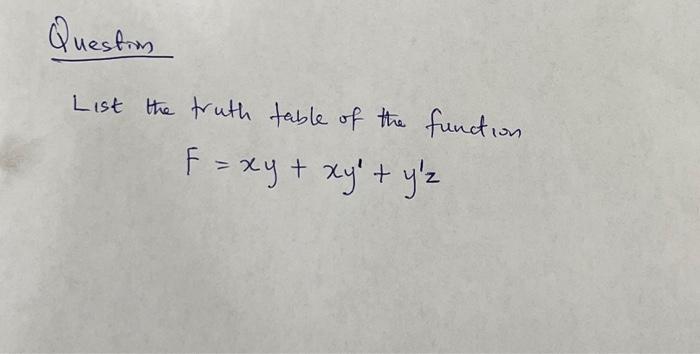 Question
List the truth table of the function
F = xy + xy' + y'z